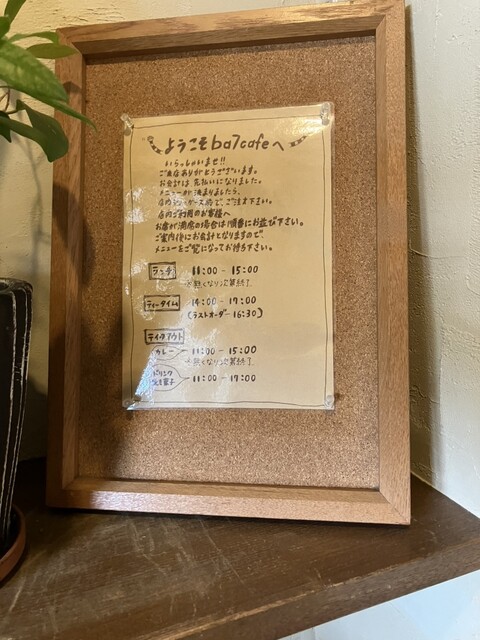 ようこそba7cafeへ
いらっしゃいませ!!
ご来店ありがとうございます。
お会計は先払いになりました。
メニューが決まりましたら、
店内ショーケース前で、ご注文下さい。
店内ご利用のお客様へ
お席が満席の場合は順番にお並び下さい。
ご案内後にお会計となりますので、
メニューをご覧になってお待ち下さい。
ランチ 11:00 - 15:00
※無くなり次第終了
ティータイム 14:00 - 17:00
(ラストオーダー 16:30)
テイクアウト
カレー 11:00 - 15:00
※無くなり次第終了
ドリンク
焼き菓子 11:00 - 17:00